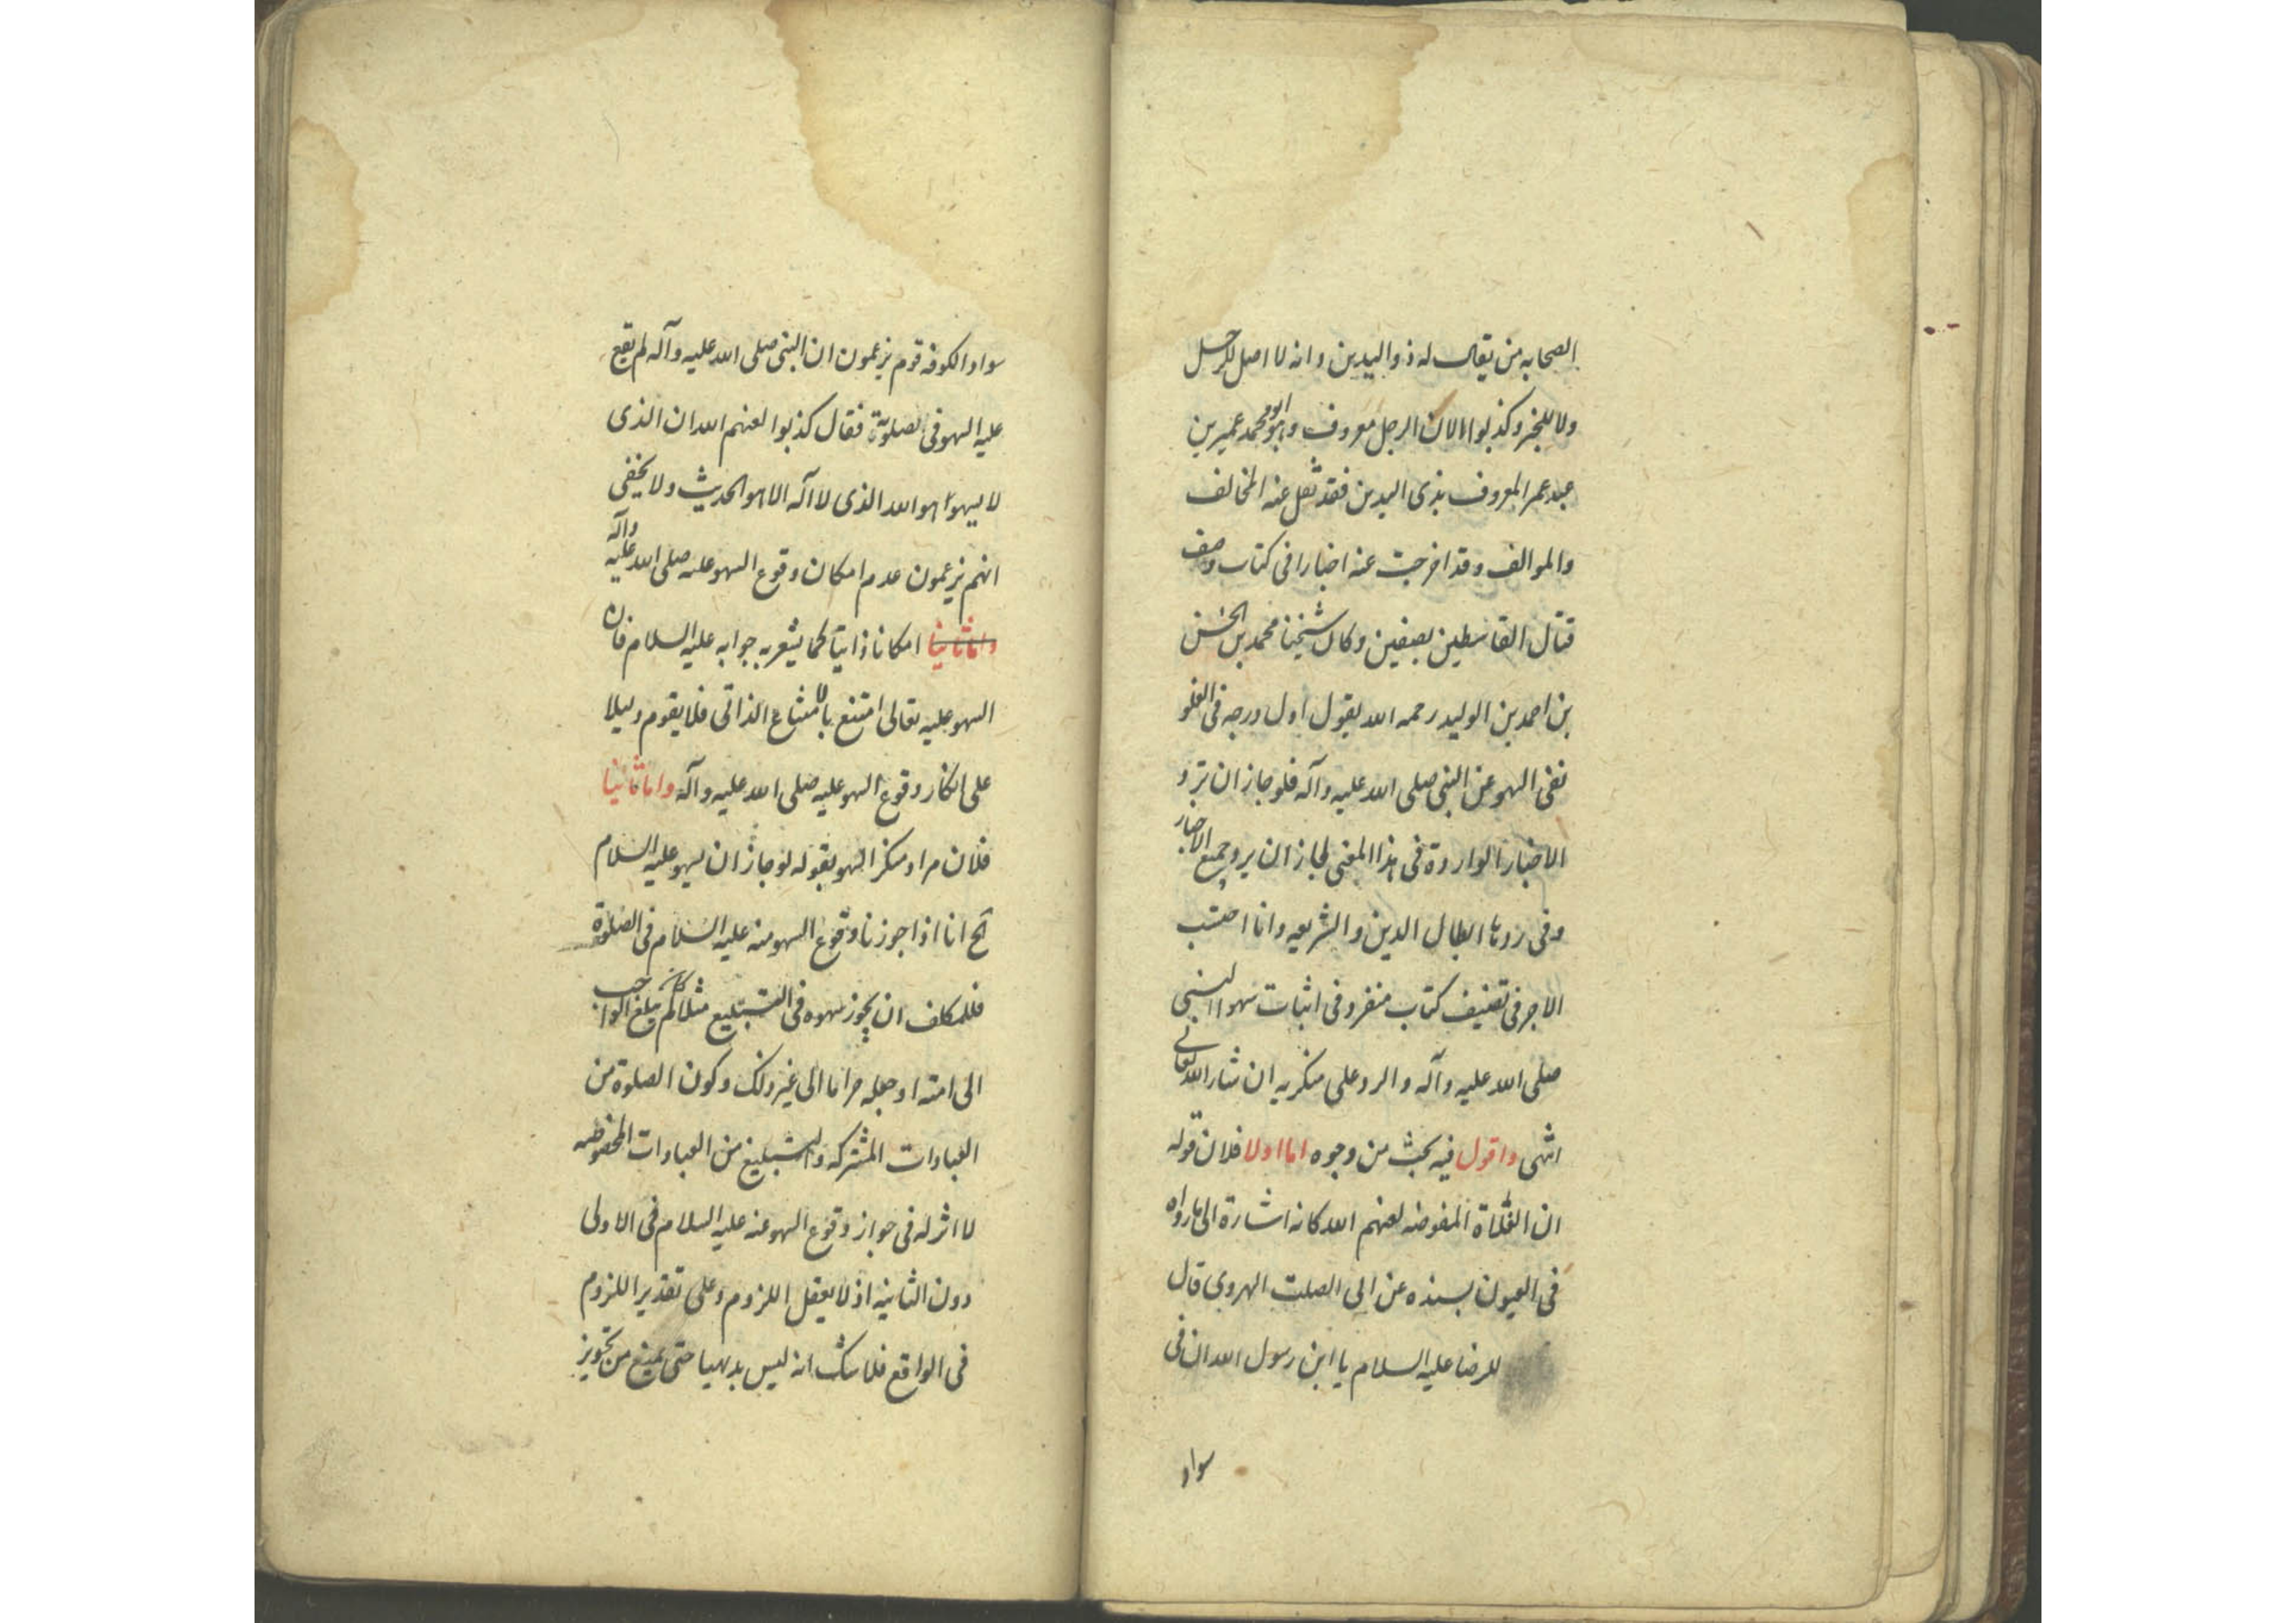 الصحابه من يقال له ذو اليدين و انه لا اصل للرجل
ولا للخبر وكذبوا لان الرجل معروف وهو ابو محمد عمير بن
عبد عمر المعروف بذى اليدين فقد نقل عنه المخالف
والموالف وقد اخرجت عنه اخبارا فى كتاب وصف
قتال القاسطين بصفين وكان شيخنا محمد بن الحسن
بن احمد بن الوليد رحمه الله يقول اول درجه فى الغلو
نفى السهو عن النبى صلى الله عليه وآله فلو جاز ان ترد
الاخبار الواردة فى هذا المعنى لجاز ان يرد جميع الاخبار
وفى ردها ابطال الدين والشريعه وانا احتسب
الاجر فى تصنيف كتاب منفرد فى اثبات سهو النبى
صلى الله عليه وآله والرد على منكريه ان شاء الله تعالى
انتهى واقول فيه بحث من وجوه اما اولا فلان قوله
ان الغلاة المفوضه لعنهم الله كانه اشارة الى ما رواه
فى العيون بسنده عن ابى الصلت الهروى قال
للرضا عليه السلام يا ابن رسول الله ان فى
سواد
سواد الكوفه قوم يزعمون ان النبى صلى الله عليه وآله لم يقع
عليه السهو فى صلوته فقال كذبوا لعنهم الله ان الذى
لا يسهو هو الله الذى لا اله الا هو الحديث ولا يخفى
انهم يزعمون عدم امكان وقوع السهو عليه صلى الله عليه وآله
واما ثانيا امكانا ذاتيا كما يشعر به جوابه عليه السلام فان
السهو عليه تعالى امتنع بالامتناع الذاتى فلا يقوم دليلا
على انكار وقوع السهو عليه صلى الله عليه وآله واما ثانيا
فلان مراد منكر السهو بقوله لو جاز ان يسهو عليه السلام
آلخ انا اذا جوزنا وقوع السهو منه عليه السلام فى الصلوة
فللمكلف ان يجوز سهوه فى التبليغ مثلا كان لم يبلغ الواجب
الى امته او جعله حراما الى غير ذلك وكون الصلوة من
العبادات المشتركه والتبليغ من العبادات المخصوصه
لا اثر له فى جواز وقوع السهو عنه عليه السلام فى الاولى
دون الثانيه اذ لا يعقل اللزوم وعلى تقدير اللزوم
فى الواقع فلا شك انه ليس بديهيا حتى يمنع من تجويز